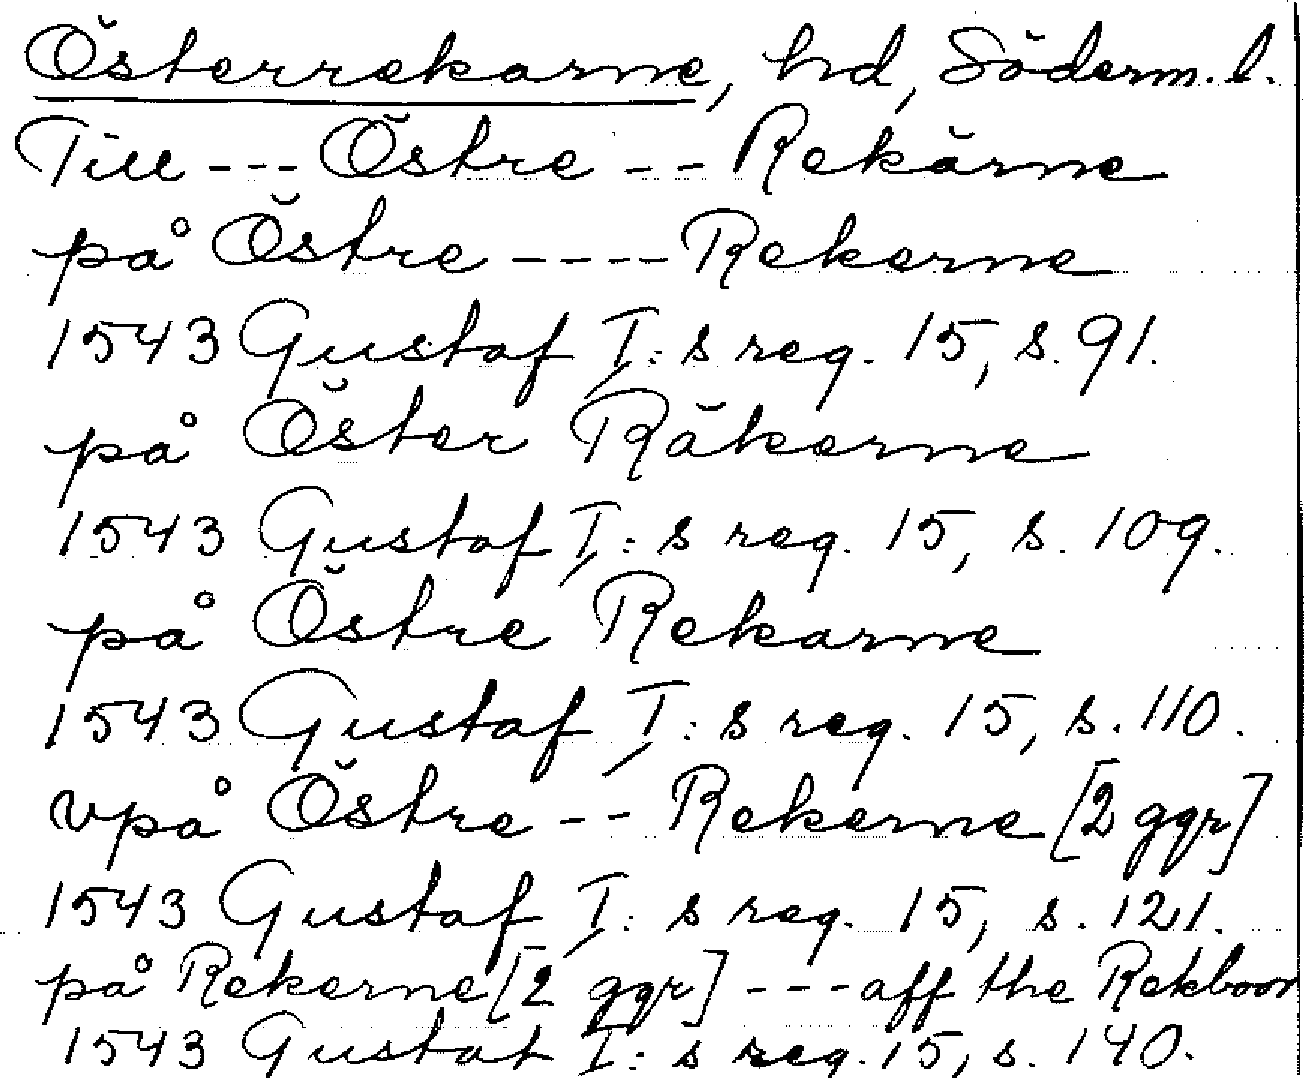 Österrekarne, hd, Söderm. l.
Till --- Östre -- Rekärne
på Östre ---- Rekerne
1543 Gustaf I: s reg. 15, s. 91.
på Öster Räkerne
1543 Gustaf I: s reg. 15, s. 109.
på Östre Rekarne
1543 Gustaf I: s reg. 15, s. 110.
vpå Östre -- Rekerne [2 ggr]
1543 Gustaf I: s reg. 15, s. 121.
på Rekerne [2 ggr] --- aff the Rekboor
1543 Gustaf I: s reg. 15, s. 140.